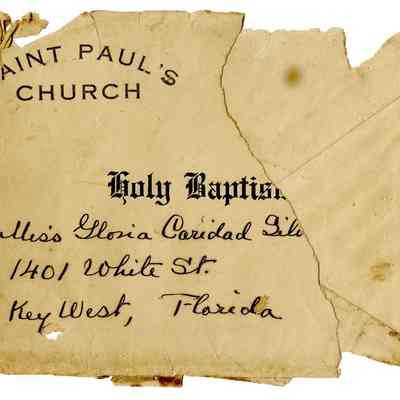 AINT PAUL'S
CHURCH
Holy Baptis
Miss Gloria Caridad
1401 White St.
Key West, Florida